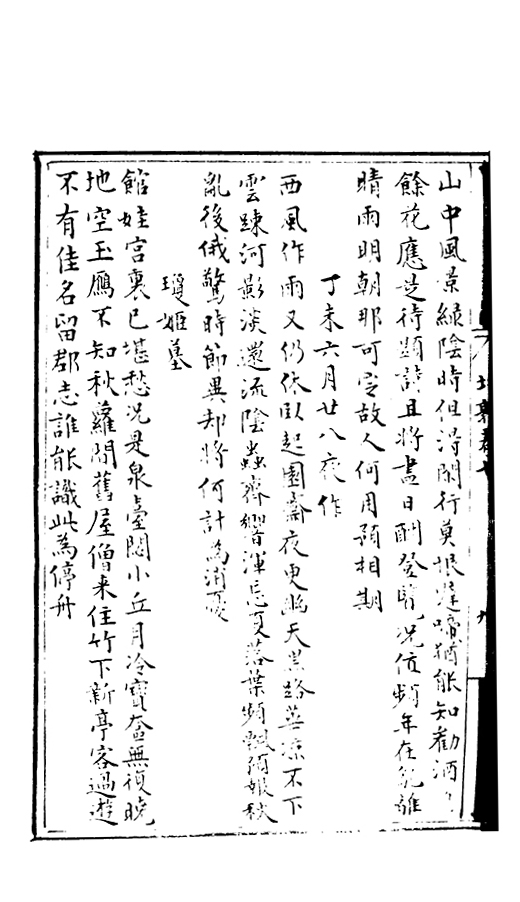 山中風景綠陰時但得閑行莫恨遲啼 猶能知勸酒
餘花應是待題詩且將盡日酬登覽況値頻年在亂離
晴雨明朝那可定故人何用預相期
丁未六月廿八夜作
西風作雨又仍休臥起園齋夜更幽天黑路 蒼凉不下
雲疎河影淡還流陰蟲齊響渾忘夏落葉頻飄預報秋
亂後俄驚時節異却將何計爲消憂
瓊姬墓
館娃宮裏已堪愁況是泉臺閟小丘月冷寶奩無復曉
地空玉鴈不知秋蘿間舊屋僧来住竹下新亭客過遊
不有佳名留郡志誰能識此為停舟